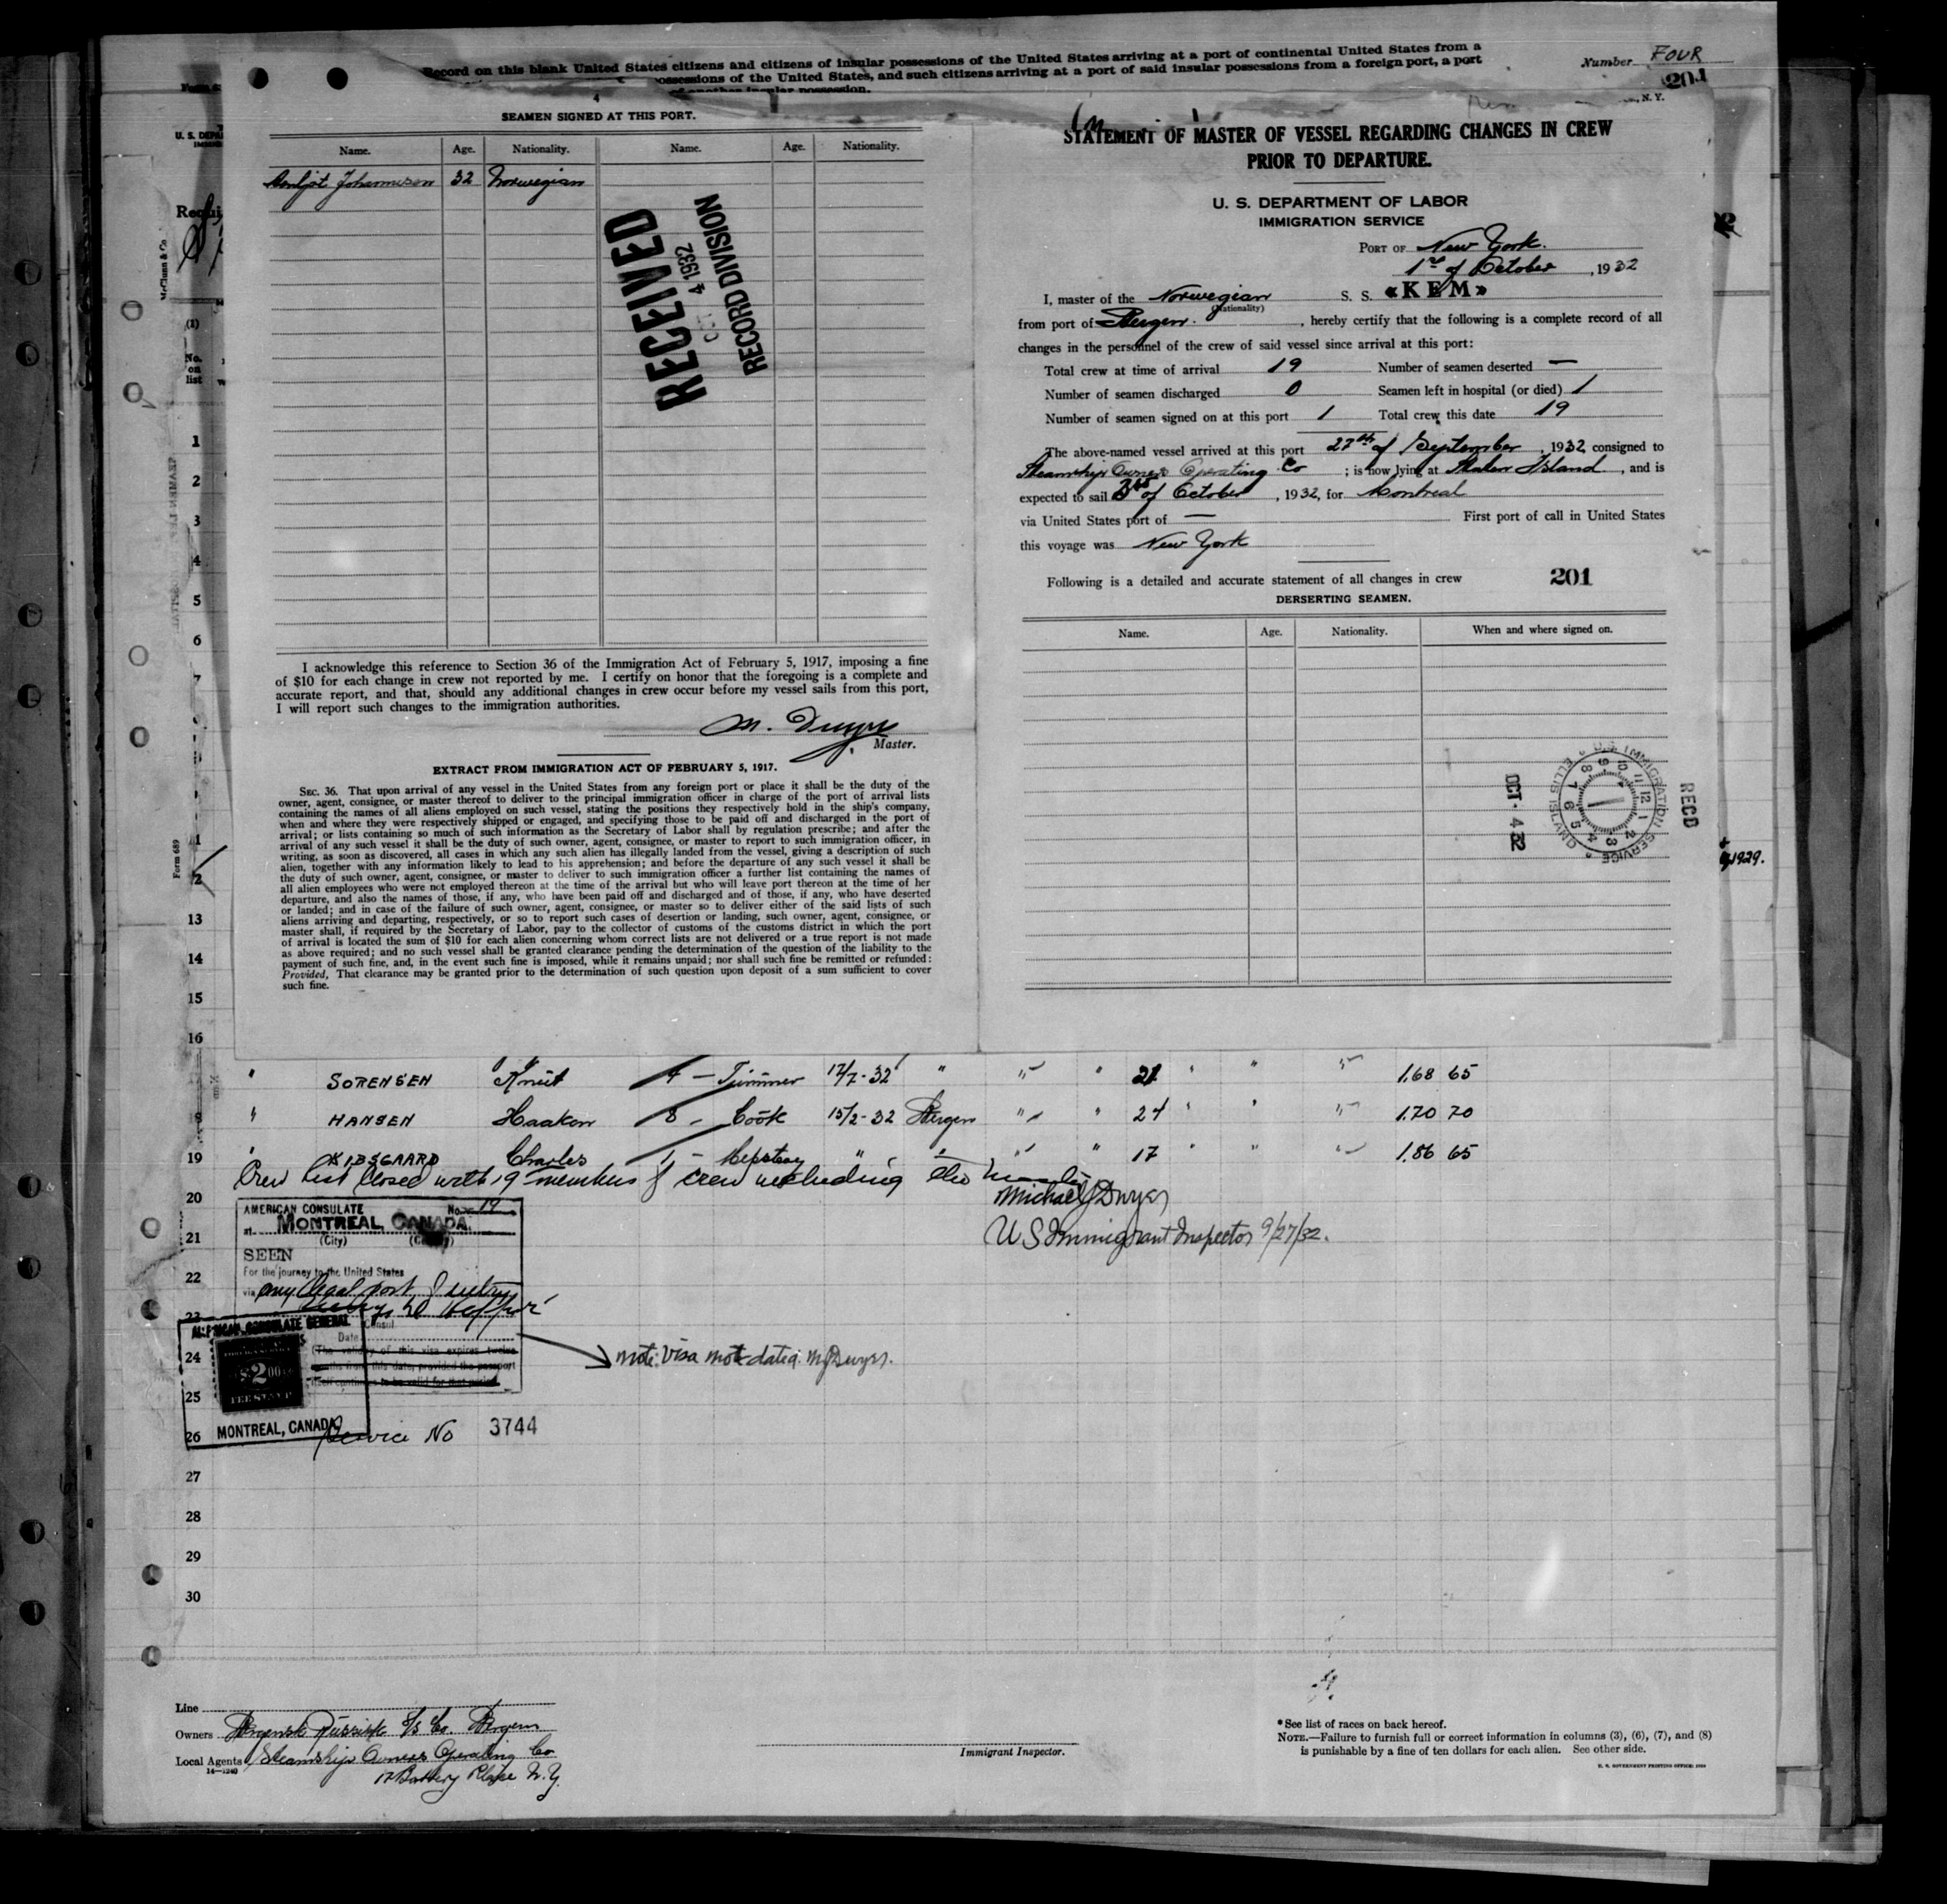 Record on this blank United States citizens and citizens of insular possessions of the United States arriving at a port of continental United States from a
possessions of the United States, and such citizens arriving at a port of said insular possessions from a foreign port, a port
of another insular possession.
Number FOUR
201
N. Y.
4
SEAMEN SIGNED AT THIS PORT.
Name. Age. Nationality. Name. Age. Nationality.
32 Norwegian
RECEIVED
4 1932
RECORD DIVISION
I acknowledge this reference to Section 36 of the Immigration Act of February 5, 1917, imposing a fine
of $10 for each change in crew not reported by me. I certify on honor that the foregoing is a complete and
accurate report, and that, should any additional changes in crew occur before my vessel sails from this port,
I will report such changes to the immigration authorities.
Master.
EXTRACT FROM IMMIGRATION ACT OF FEBRUARY 5, 1917.
SEC. 36. That upon arrival of any vessel in the United States from any foreign port or place it shall be the duty of the
owner, agent, consignee, or master thereof to deliver to the principal immigration officer in charge of the port of arrival lists
containing the names of all aliens employed on such vessel, stating the positions they respectively hold in the ship's company,
when and where they were respectively shipped or engaged, and specifying those to be paid off and discharged in the port of
arrival; or lists containing so much of such information as the Secretary of Labor shall by regulation prescribe; and after the
arrival of any such vessel it shall be the duty of such owner, agent, consignee, or master to report to such immigration officer, in
writing, as soon as discovered, all cases in which any such alien has illegally landed from the vessel, giving a description of such
alien, together with any information likely to lead to his apprehension; and before the departure of any such vessel it shall be
the duty of such owner, agent, consignee, or master to deliver to such immigration officer a further list containing the names of
all alien employees who were not employed thereon at the time of the arrival but who will leave port thereon at the time of her
departure, and also the names of those, if any, who have been paid off and discharged and of those, if any, who have deserted
or landed; and in case of the failure of such owner, agent, consignee, or master so to deliver either of the said lists of such
aliens arriving and departing, respectively, or so to report such cases of desertion or landing, such owner, agent, consignee, or
master shall, if required by the Secretary of Labor, pay to the collector of customs of the customs district in which the port
of arrival is located the sum of $10 for each alien concerning whom correct lists are not delivered or a true report is not made
as above required; and no such vessel shall be granted clearance pending the determination of the question of the liability to the
payment of such fine, and, in the event such fine is imposed, while it remains unpaid; nor shall such fine be remitted or refunded:
Provided, That clearance may be granted prior to the determination of such question upon deposit of a sum sufficient to cover
such fine.
STATEMENT OF MASTER OF VESSEL REGARDING CHANGES IN CREW
PRIOR TO DEPARTURE.
U. S. DEPARTMENT OF LABOR
IMMIGRATION SERVICE
PORT OF New York.
1st of October, 1932
I, master of the Norwegian S. S. «KEM»
(Nationality)
from port of Bergen., hereby certify that the following is a complete record of all
changes in the personnel of the crew of said vessel since arrival at this port:
Total crew at time of arrival 19 Number of seamen deserted —
Number of seamen discharged 0 Seamen left in hospital (or died) 1
Number of seamen signed on at this port 1 Total crew this date 19
The above-named vessel arrived at this port 27th of September, 1932, consigned to
Steamship Owners Operating Co; is now lying at Staten Island, and is
expected to sail 3rd of October, 1932, for Montreal
via United States port of — First port of call in United States
this voyage was New York
Following is a detailed and accurate statement of all changes in crew 201
DERSERTING SEAMEN.
Name. Age. Nationality. When and where signed on.
U. S. IMMIGRATION SERVICE ELLIS ISLAND
RECD
OCT - 4 32
1929.
Form 689
1
2
3
4
5
6
7
1
2
13
14
15
16
" SORENSEN Knut 4 — Trimmer 12/7-32 " " " 21 " " " 1.68 65
" HANSEN Haakon 8 — Cook 15/2-32 Bergen " " 24 " " " 1.70 70
19 " KIBSGAARD Charles 1 — " " " " 17 " " " 1.86 65
Crew list closed with 19 members of crew including the master
Michael J Dwyer
US Immigrant Inspector 9/27/32.
20
21
22
23
24
25
26
27
28
29
30
AMERICAN CONSULATE No. 19
at MONTREAL, CANADA.
(City) (Country)
SEEN
For the journey to the United States
via any legal port of entry
Consul
Date
(The validity of this visa expires twelve
months from this date, provided the passport
itself continues to be valid for that period
AMERICAN CONSULATE GENERAL
$2.00
FEE STAMP
MONTREAL, CANADA
Service No 3744
note: visa not dated. MJDwyer.
Line
Owners Bergens S/S Co. Bergen
Local Agents Steamship Owners Operating Co
14—1240
17 Battery Place N.Y.
Immigrant Inspector.
* See list of races on back hereof.
NOTE.—Failure to furnish full or correct information in columns (3), (6), (7), and (8)
is punishable by a fine of ten dollars for each alien. See other side.
U. S. GOVERNMENT PRINTING OFFICE: 1929